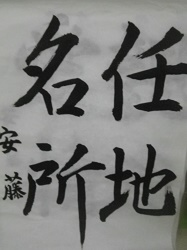 任地
名所
安藤